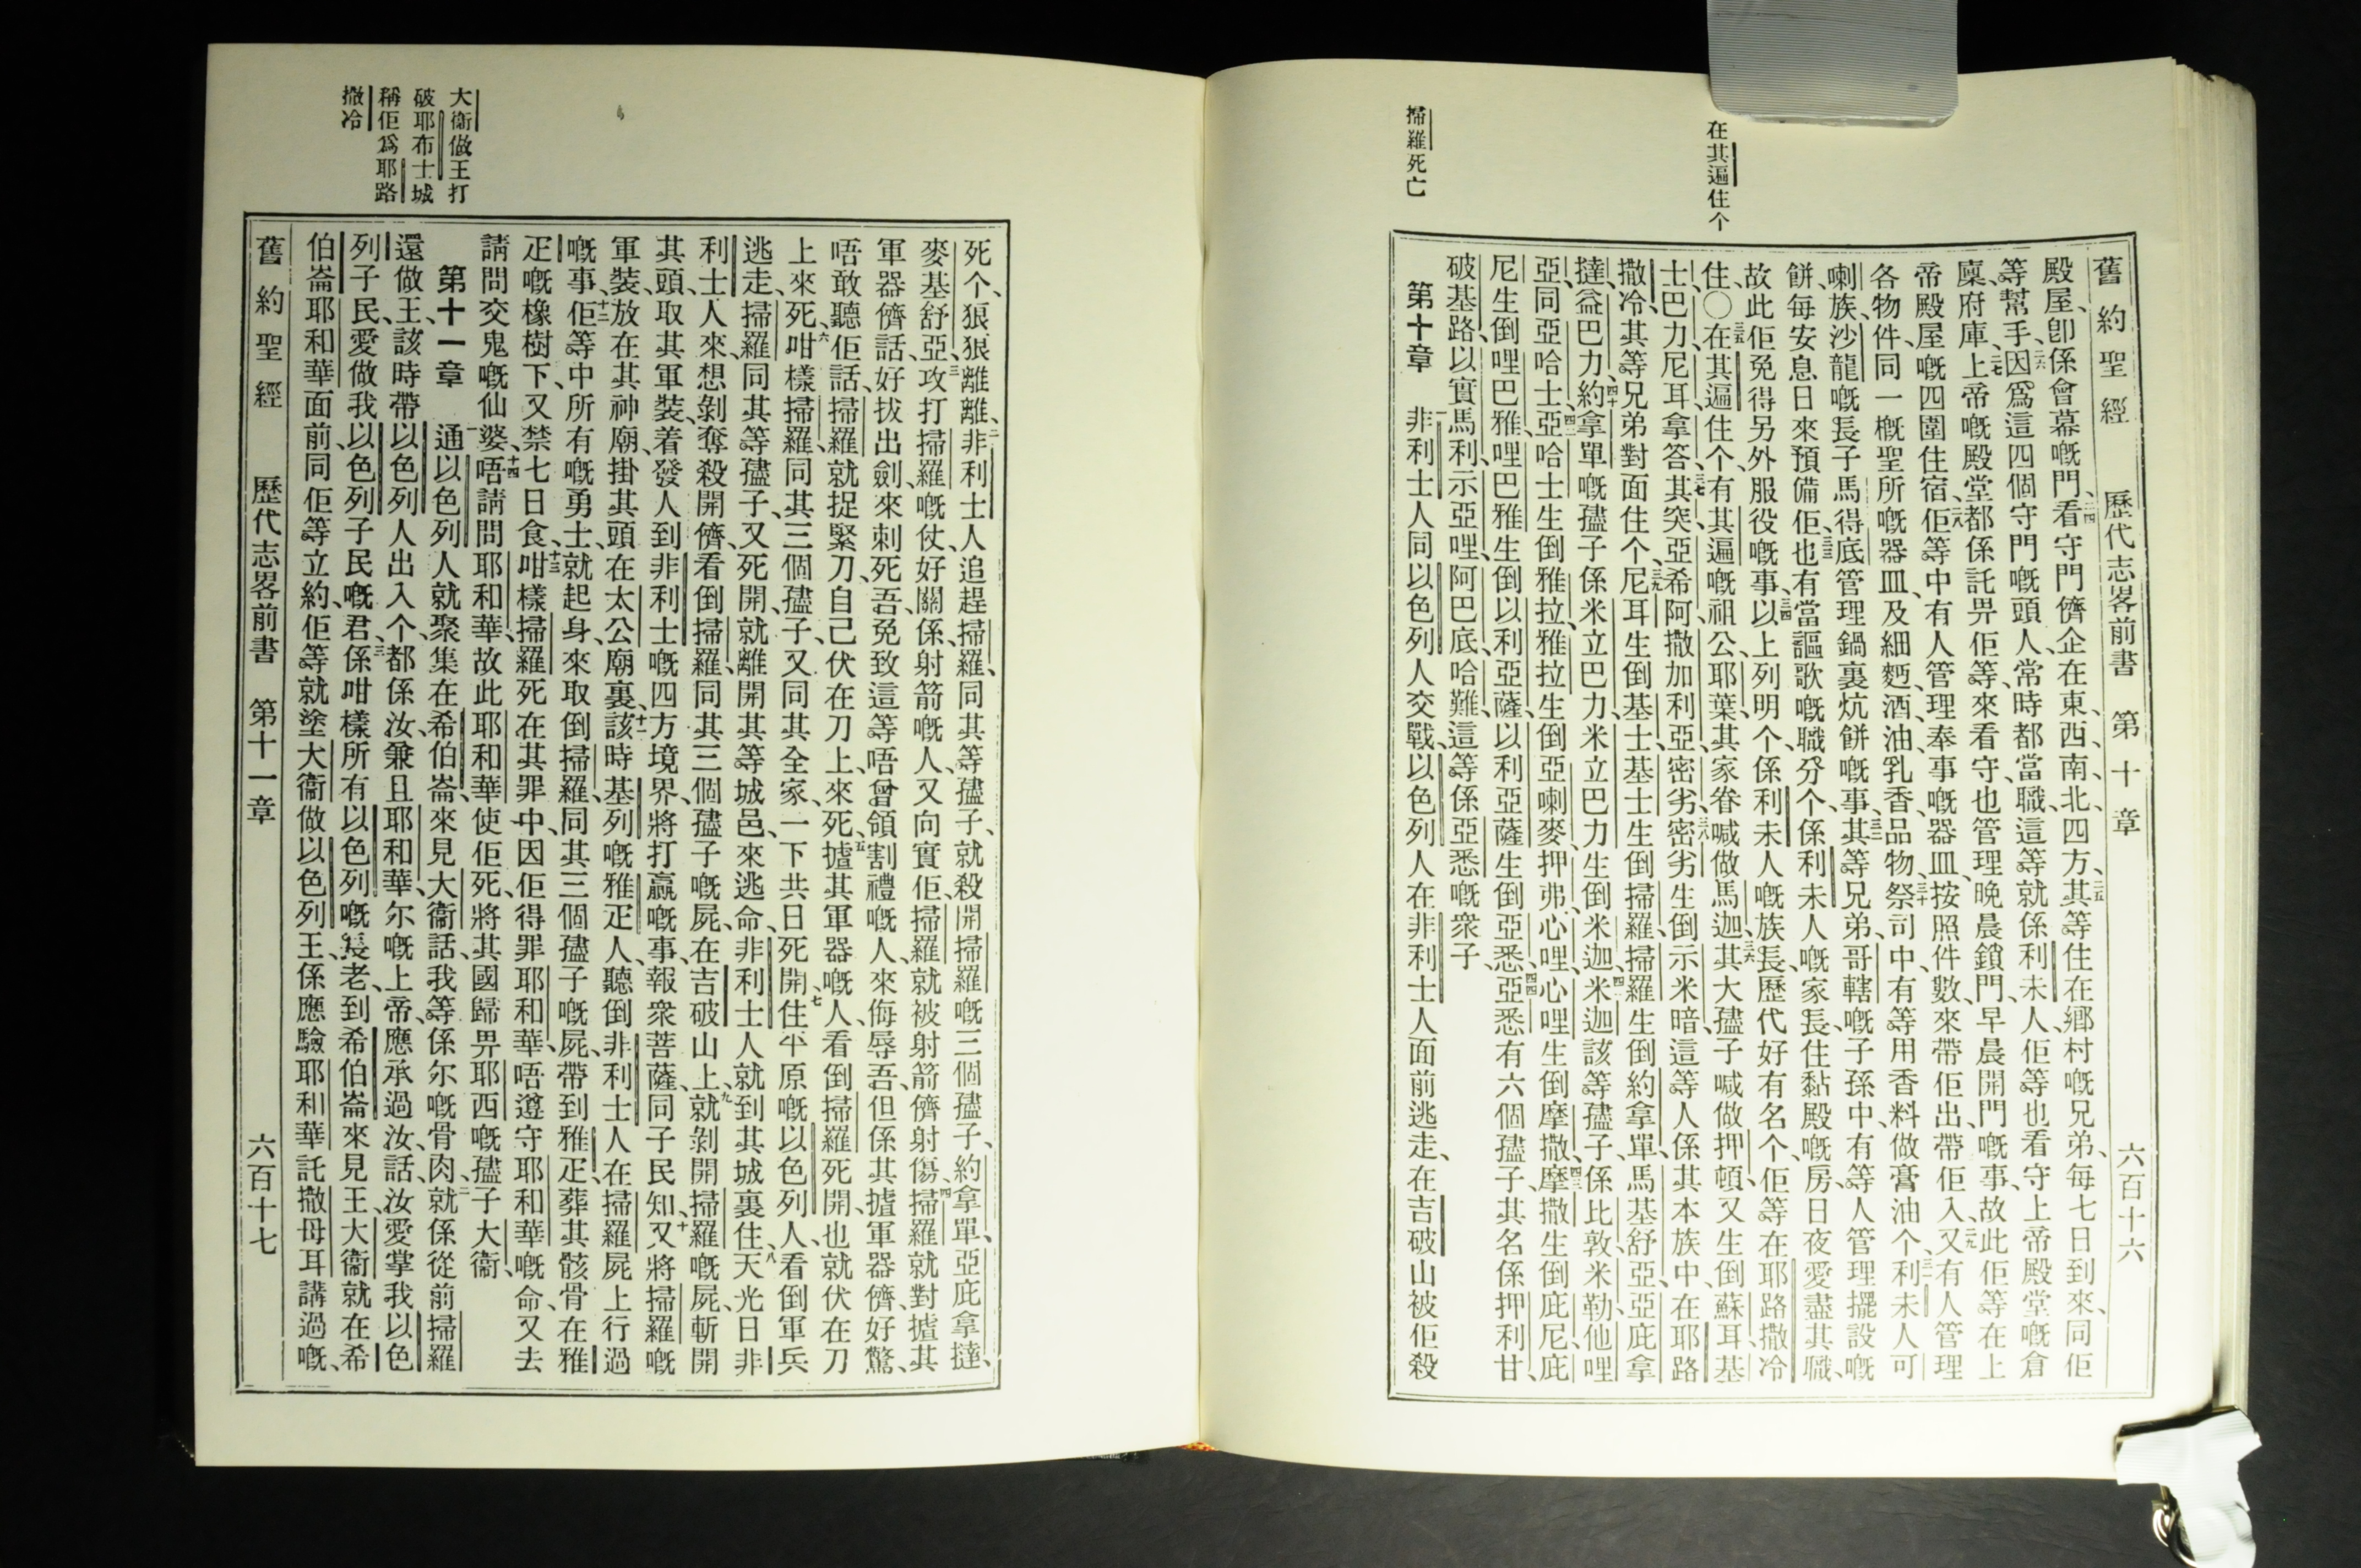 在其遍住个
掃羅死亡
舊約聖經　歷代志畧前書　第十章　六百十六
殿屋、卽係會幕嘅門、二四看守門儕企在東、西、南、北、四方、二五其等住在鄉村嘅兄弟、每七日到來、同佢
等幫手、二六因爲這四個守門嘅頭人、常時都當職、這等就係利未人、佢等也看守上帝殿堂嘅倉
廩府庫、二七上帝嘅殿堂都係託畀佢等、來看守、也管理晚晨鎖門、早晨開門嘅事、故此佢等在上
帝殿屋嘅四圍住宿、二八佢等中有人管理奉事嘅器皿、按照件數、來帶佢出、帶佢入、二九又有人管理
各物件、同一概聖所嘅器皿、及細麪、酒、油、乳香、品物、三十祭司中、有等用香料做膏油个、三一利未人可
喇族、沙龍嘅長子馬得底管理鍋裏炕餅嘅事、三二其等兄弟、哥轄嘅子孫中、有等人管理擺設嘅
餅、每安息日來預備佢、三三也有當謳歌嘅職分个、係利未人嘅家長、住黏殿嘅房、日夜愛盡其職、
故此佢免得另外服役嘅事、三四以上列明个、係利未人嘅族長、歷代好有名个、佢等在耶路撒冷
住、〇三五在其遍住个、有其遍嘅祖公、耶葉、其家眷喊做馬迦、三六其大孻子喊做押頓、又生倒蘇耳、基
士、巴力、尼耳、拿答、三七其突、亞希阿、撒加利亞、密劣、三八密劣生倒示米暗、這等人係其本族中、在耶路
撒冷、其等兄弟對面住个、三九尼耳生倒基士、基士生倒掃羅、掃羅生倒約拿單、馬基舒亞、亞庇拿
撻、益巴力、四十約拿單嘅孻子係米立巴力、米立巴力生倒米迦、四一米迦該等孻子、係比敦、米勒、他哩
亞、同亞哈士、四二亞哈士生倒雅拉、雅拉生倒亞喇麥、押弗、心哩、心哩生倒摩撒、四三摩撒生倒庇尼、庇
尼生倒哩巴雅、哩巴雅生倒以利亞薩、以利亞薩生倒亞悉、四四亞悉有六個孻子、其名係押利甘、
破基路、以實馬利、示亞哩、阿巴底、哈難、這等係亞悉嘅衆子、
第十章　一非利士人同以色列人交戰、以色列人在非利士人面前逃走、在吉破山被佢殺
大衞做王打
破耶布士城
稱佢爲耶路
撒冷
死个、狠狠離離、二非利士人追趕掃羅、同其等孻子、就殺開掃羅嘅三個孻子、約拿單、亞庇拿撻、
麥基舒亞、三攻打掃羅嘅仗、好關係、射箭嘅人、又向實佢、掃羅就被射箭儕射傷、四掃羅就對攎其
軍器儕話、好拔出劍、來刺死吾、免致這等唔曾領割禮嘅人、來侮辱吾、但係其攎軍器儕、好驚、
唔敢聽佢話、掃羅就捉緊刀、自己伏在刀上、來死、五攎其軍器嘅人、看倒掃羅死開、也就伏在刀
上來死、六咁樣掃羅、同其三個孻子、又同其全家、一下共日死開、七住平原嘅以色列人、看倒軍兵
逃走、掃羅同其等孻子、又死開、就離開其等城邑、來逃命、非利士人就到其城裏住、八天光日非
利士人來、想剝奪殺開儕、看倒掃羅、同其三個孻子嘅屍、在吉破山上、九就剝開掃羅嘅屍、斬開
其頭、取其軍裝、着發人到非利士嘅四方境界、將打贏嘅事、報衆菩薩、同子民知、十又將掃羅嘅
軍裝、放在其神廟、掛其頭在太公廟裏、十一該時基列嘅雅疋人、聽倒非利士人在掃羅屍上行過
嘅事、十二佢等中所有嘅勇士、就起身、來取倒掃羅、同其三個孻子嘅屍、帶到雅疋、葬其骸骨在雅
疋嘅橡樹下、又禁七日食、十三咁樣掃羅死在其罪中、因佢得罪耶和華、唔遵守耶和華嘅命、又去
請問交鬼嘅仙婆、十四唔請問耶和華、故此耶和華使佢死、將其國歸畀耶西嘅孻子大衞、
第十一章　一通以色列人就聚集在希伯崙、來見大衞話、我等係尔嘅骨肉、二就係從前掃羅
還做王、該時帶以色列人出入个、都係汝、兼且耶和華、尔嘅上帝、應承過汝、話、汝愛掌我以色
列子民、愛做我以色列子民嘅君、三係咁樣所有以色列嘅長老、到希伯崙來見王、大衞就在希
伯崙、耶和華面前、同佢等立約、佢等就塗大衞做以色列王、係應驗耶和華託撒母耳講過嘅、
舊約聖經　歷代志畧前書　第十一章　六百十七